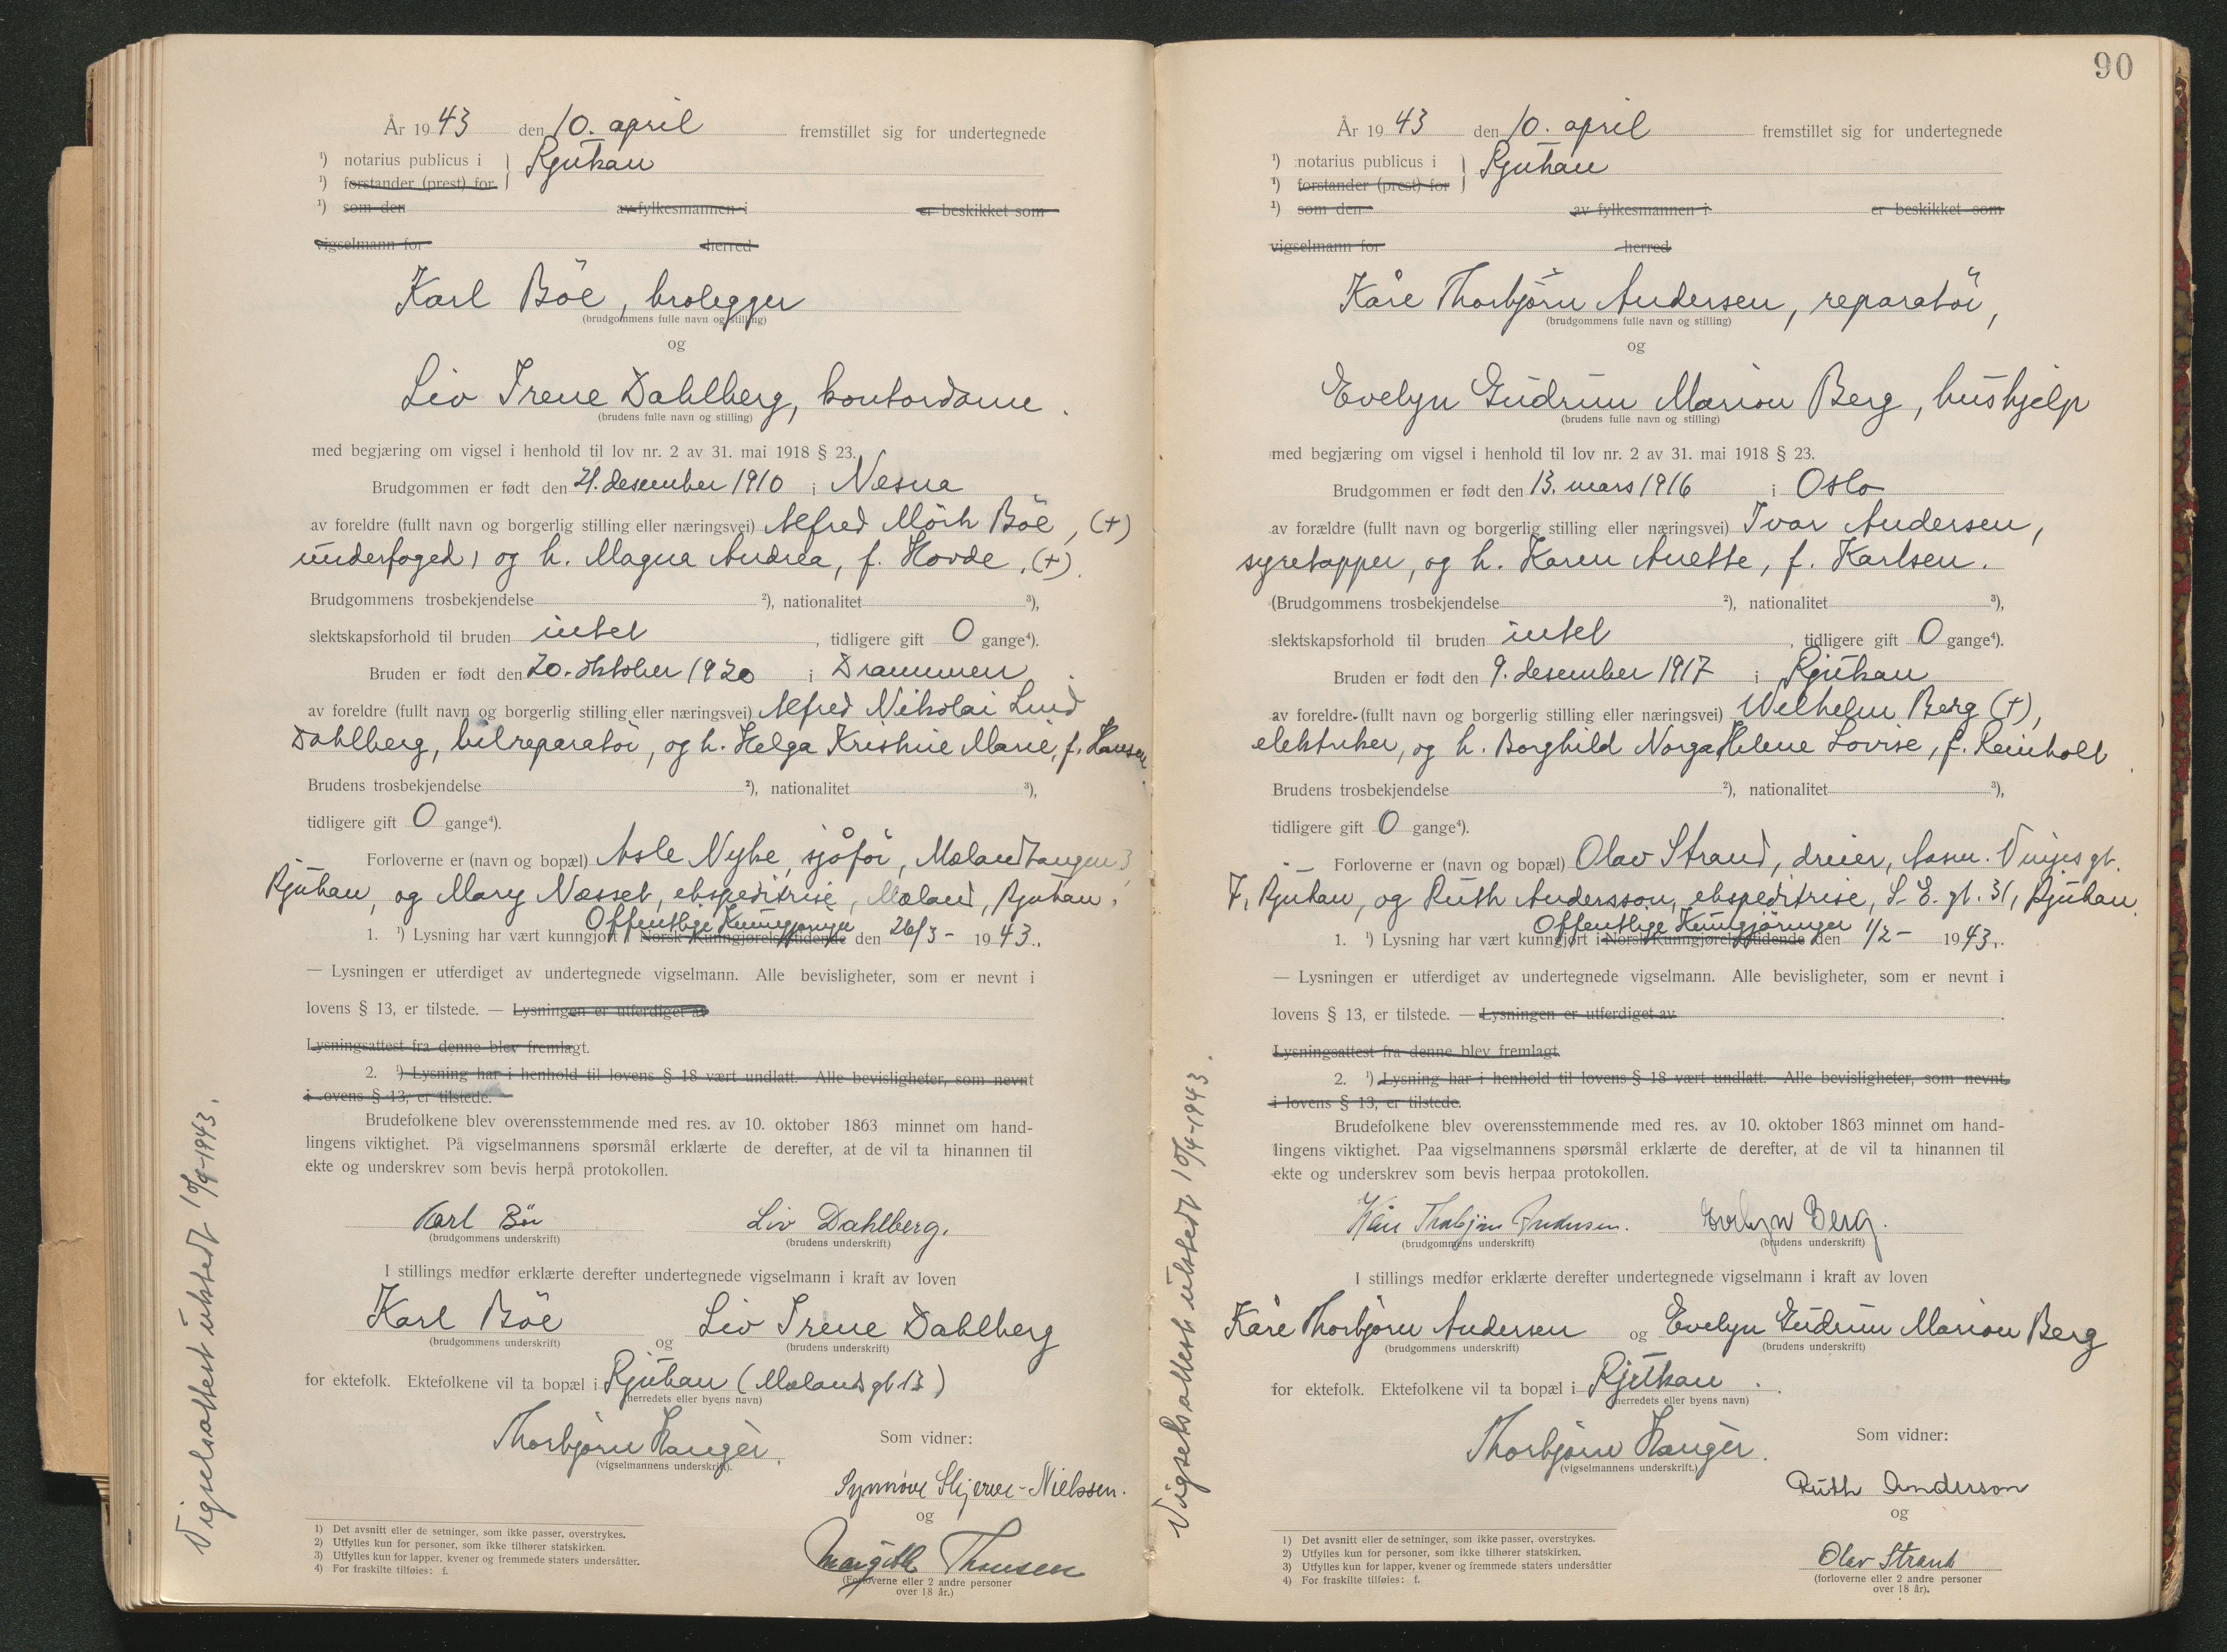 År 1943 den 10. april fremstillet sig for undertegnede
¹) notarius publicus i } Rjukan
¹) forstander (prest) for
¹) som den av fylkesmannen i er beskikket som
vigselmann for herred
Karl Böe, brolegger
(brudgommens fulle navn og stilling)
og
Liv Irene Dahlberg, kontordame.
(brudens fulle navn og stilling)
med begjæring om vigsel i henhold til lov nr. 2 av 31. mai 1918 § 23.
Brudgommen er født den 21. desember 1910 i Nesna
av foreldre (fullt navn og borgerlig stilling eller næringsvei) Alfred Mörk Böe, (+)
underfoged, og h. Magna Andrea, f. Hovde, (+).
Brudgommens trosbekjendelse ²), nationalitet ³),
slektskapsforhold til bruden intet, tidligere gift 0 gange⁴).
Bruden er født den 20. oktober 1920 i Drammen
av foreldre (fullt navn og borgerlig stilling eller næringsvei) Alfred Nikolai Lund
Dahlberg, bilreparatör, og h. Helga Kristine Marie, f. Hansen.
Brudens trosbekjendelse ²), nationalitet ³),
tidligere gift 0 gange⁴).
Forloverne er (navn og bopæl) Asle Nyhe, sjåför, Mælandtangen 3,
Rjukan, og Mary Næsset, ekspeditrise, Mæland, Rjukan.
Offentlige Kunngjöringer
1. ¹) Lysning har vært kunngjort i Norsk Kunngjørelsestidende den 26/3- 1943.
— Lysningen er utferdiget av undertegnede vigselmann. Alle bevisligheter, som er nevnt i
lovens § 13, er tilstede. — Lysningen er utferdiget av
Lysningsattest fra denne blev fremlagt.
2. ¹) Lysning har i henhold til lovens § 18 vært undlatt. Alle bevisligheter, som nevnt
i lovens § 13, er tilstede.
Brudefolkene blev overensstemmende med res. av 10. oktober 1863 minnet om hand-
lingens viktighet. På vigselmannens spørsmål erklærte de derefter, at de vil ta hinannen til
ekte og underskrev som bevis herpå protokollen.
Karl Böe Liv Dahlberg.
(brudgommens underskrift) (brudens underskrift)
I stillings medfør erklærte derefter undertegnede vigselmann i kraft av loven
Karl Böe og Liv Irene Dahlberg
(brudgommens underskrift) (brudens underskrift)
for ektefolk. Ektefolkene vil ta bopæl i Rjukan (Mælandsgt 13)
(herredets eller byens navn)
Thorbjörn Haugèr.
(vigselmannens underskrift).
Som vidner:
Synnöve Skjerve-Nielssen.
og
Margith Thonsen
(Forloverne eller 2 andre personer
over 18 år.)
1) Det avsnitt eller de setninger, som ikke passer, overstrykes.
2) Utfylles kun for personer, som ikke tilhører statskirken.
3) Utfylles kun for lapper, kvener og fremmede staters undersåtter.
4) For fraskilte tilføies: f.
Vigselsattest utstedt 10/4-1943.
90
År 1943 den 10. april fremstillet sig for undertegnede
¹) notarius publicus i } Rjukan
¹) forstander (prest) for
¹) som den av fylkesmannen i er beskikket som
vigselmann for herred
Kåre Thorbjörn Andersen, reparatör,
(brudgommens fulle navn og stilling)
og
Evelyn Gudrun Marion Berg, hushjelp
(brudens fulle navn og stilling)
med begjæring om vigsel i henhold til lov nr. 2 av 31. mai 1918 § 23.
Brudgommen er født den 13. mars 1916 i Oslo
av forældre (fullt navn og borgerlig stilling eller næringsvei) Ivar Andersen,
syretapper, og h. Karen Anette, f. Karlsen.
(Brudgommens trosbekjendelse ²), nationalitet ³),
slektskapsforhold til bruden intet, tidligere gift 0 gange⁴).
Bruden er født den 9. desember 1917 i Rjukan
av foreldre (fullt navn og borgerlig stilling eller næringsvei) Welhelm Berg (+),
elektriker, og h. Borghild Norga Helene Lovise, f. Reinholt.
Brudens trosbekjendelse ²), nationalitet ³),
tidligere gift 0 gange⁴).
Forloverne er (navn og bopæl) Olav Strand, dreier, Aasm. Vinjes gt.
7, Rjukan, og Ruth Andersson, ekspeditrise, S. E. gt. 31, Rjukan.
Offentlige Kunngjöringer
1. ¹) Lysning har vært kunngjort i Norsk Kunngjørelsestidende den 1/2- 1943.
— Lysningen er utferdiget av undertegnede vigselmann. Alle bevisligheter, som er nevnt i
lovens § 13, er tilstede. — Lysningen er utferdiget av
Lysningsattest fra denne blev fremlagt.
2. ¹) Lysning har i henhold til lovens § 18 vært undlatt. Alle bevisligheter, som nevnt
i lovens § 13, er tilstede.
Brudefolkene blev overensstemmende med res. av 10. oktober 1863 minnet om hand-
lingens viktighet. Paa vigselmannens spørsmål erklærte de derefter, at de vil ta hinannen til
ekte og underskrev som bevis herpaa protokollen.
Kåre Thorbjörn Andersen. Evelyn Berg.
(brudgommens underskrift) (brudens underskrift)
I stillings medfør erklærte derefter undertegnede vigselmann i kraft av loven
Kåre Thorbjörn Andersen og Evelyn Gudrun Marion Berg
(brudgommens underskrift) (brudens underskrift)
for ektefolk. Ektefolkene vil ta bopæl i Rjukan.
(herredets eller byens navn)
Thorbjörn Haugèr.
(vigselmannens underskrift.)
Som vidner:
Ruth Anderson
og
Olav Strand
(forloverne eller 2 andre personer
over 18 år).
1) Det avsnitt eller de setninger, som ikke passer, overstrykes.
2) Utfylles kun for personer, som ikke tilhører statskirken.
3) Utfylles kun for lapper, kvener og fremmede staters undersåtter
4) For fraskilte tilføies: f.
Vigselsattest utstedt 10/4-1943.